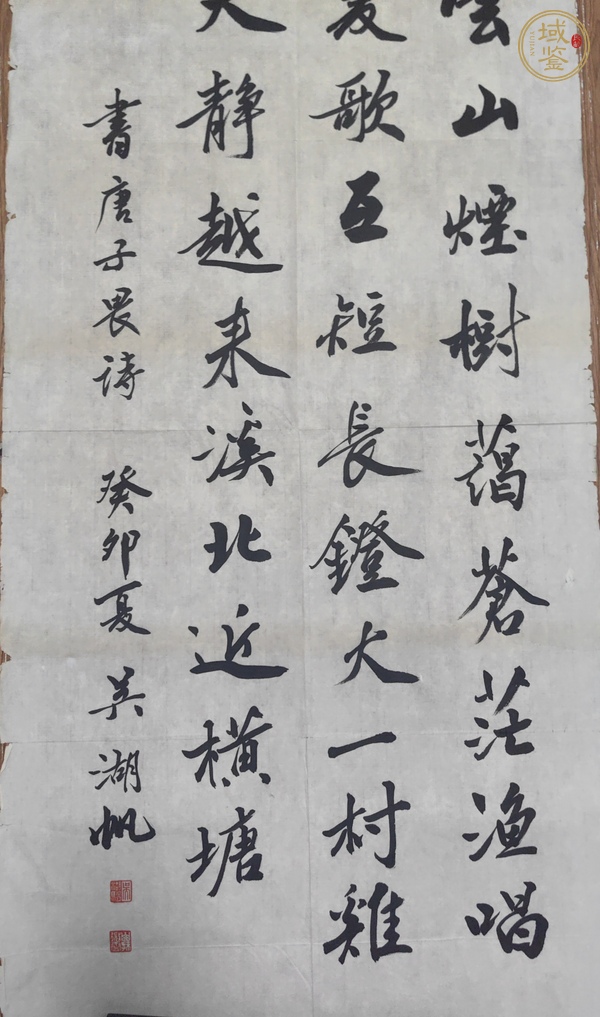 雲山煙樹藹蒼茫漁唱
菱歌互短長鐙火一村雞
犬靜越来溪北近橫塘
書唐子畏詩 癸卯夏 吴湖帆
域鉴
YUJIAN